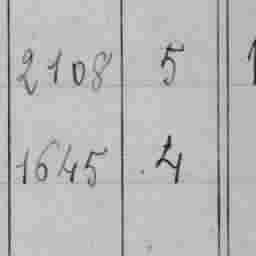 2108 5 1
1645 4